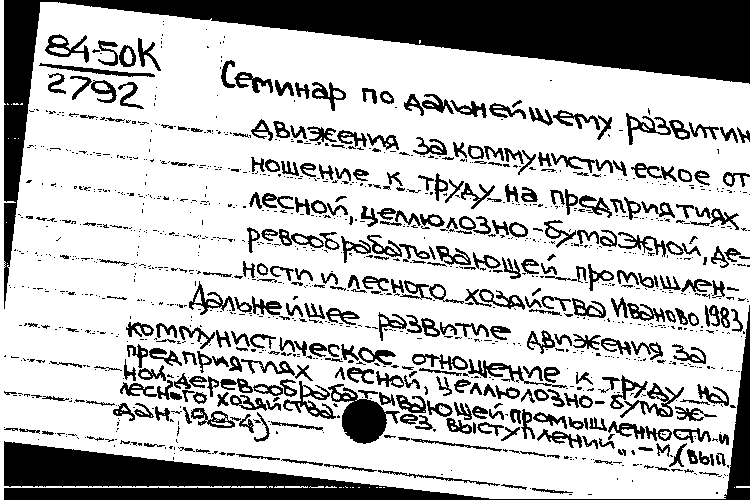 84-50К
2792
Семинар по дальнейшему развитию
движения за коммунистическое от
ношение к труду на предприятиях
лесной, целлюлозно-бумажной, де-
ревообрабатывающей промышлен-
ности и лесного хозяйства. Иваново, 1983.
Дальнейшее развитие движения за
коммунистическое отношение к труду на
предприятиях лесной, целлюлозно-бумаж-
ной, деревообрабатывающей промышленности и
лесного хозяйства. Тез. выступлений... – М., (вып.
дан. 1984).